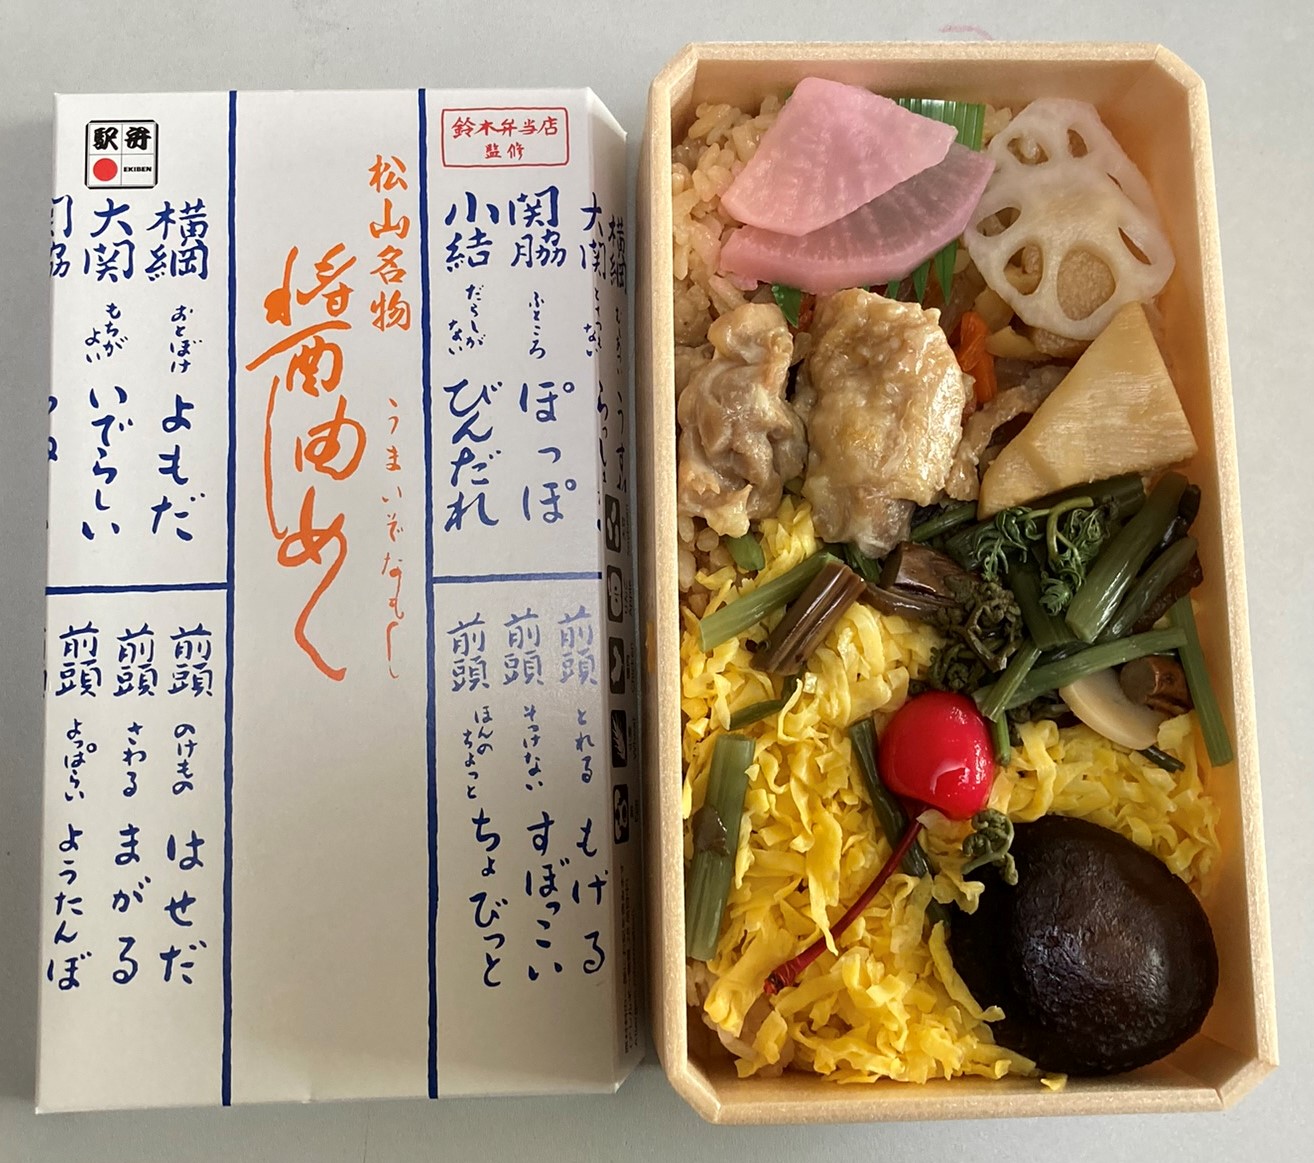 駅弁
EKIBEN
鈴木弁当店
監修
松山名物
醤油めし
うまいぞなもし
横綱
大関
関脇
ふところ
ぽっぽ
小結
だらしがない
びんだれ
前頭
とれる
もげる
前頭
そっけない
すぼっこい
前頭
ほんのちょっと
ちょびっと
横綱
おとぼけ
よもだ
大関
もちがよい
いでらしい
前頭
のけもの
はせだ
前頭
さわる
まがる
前頭
よっぱらい
ようたんぼ